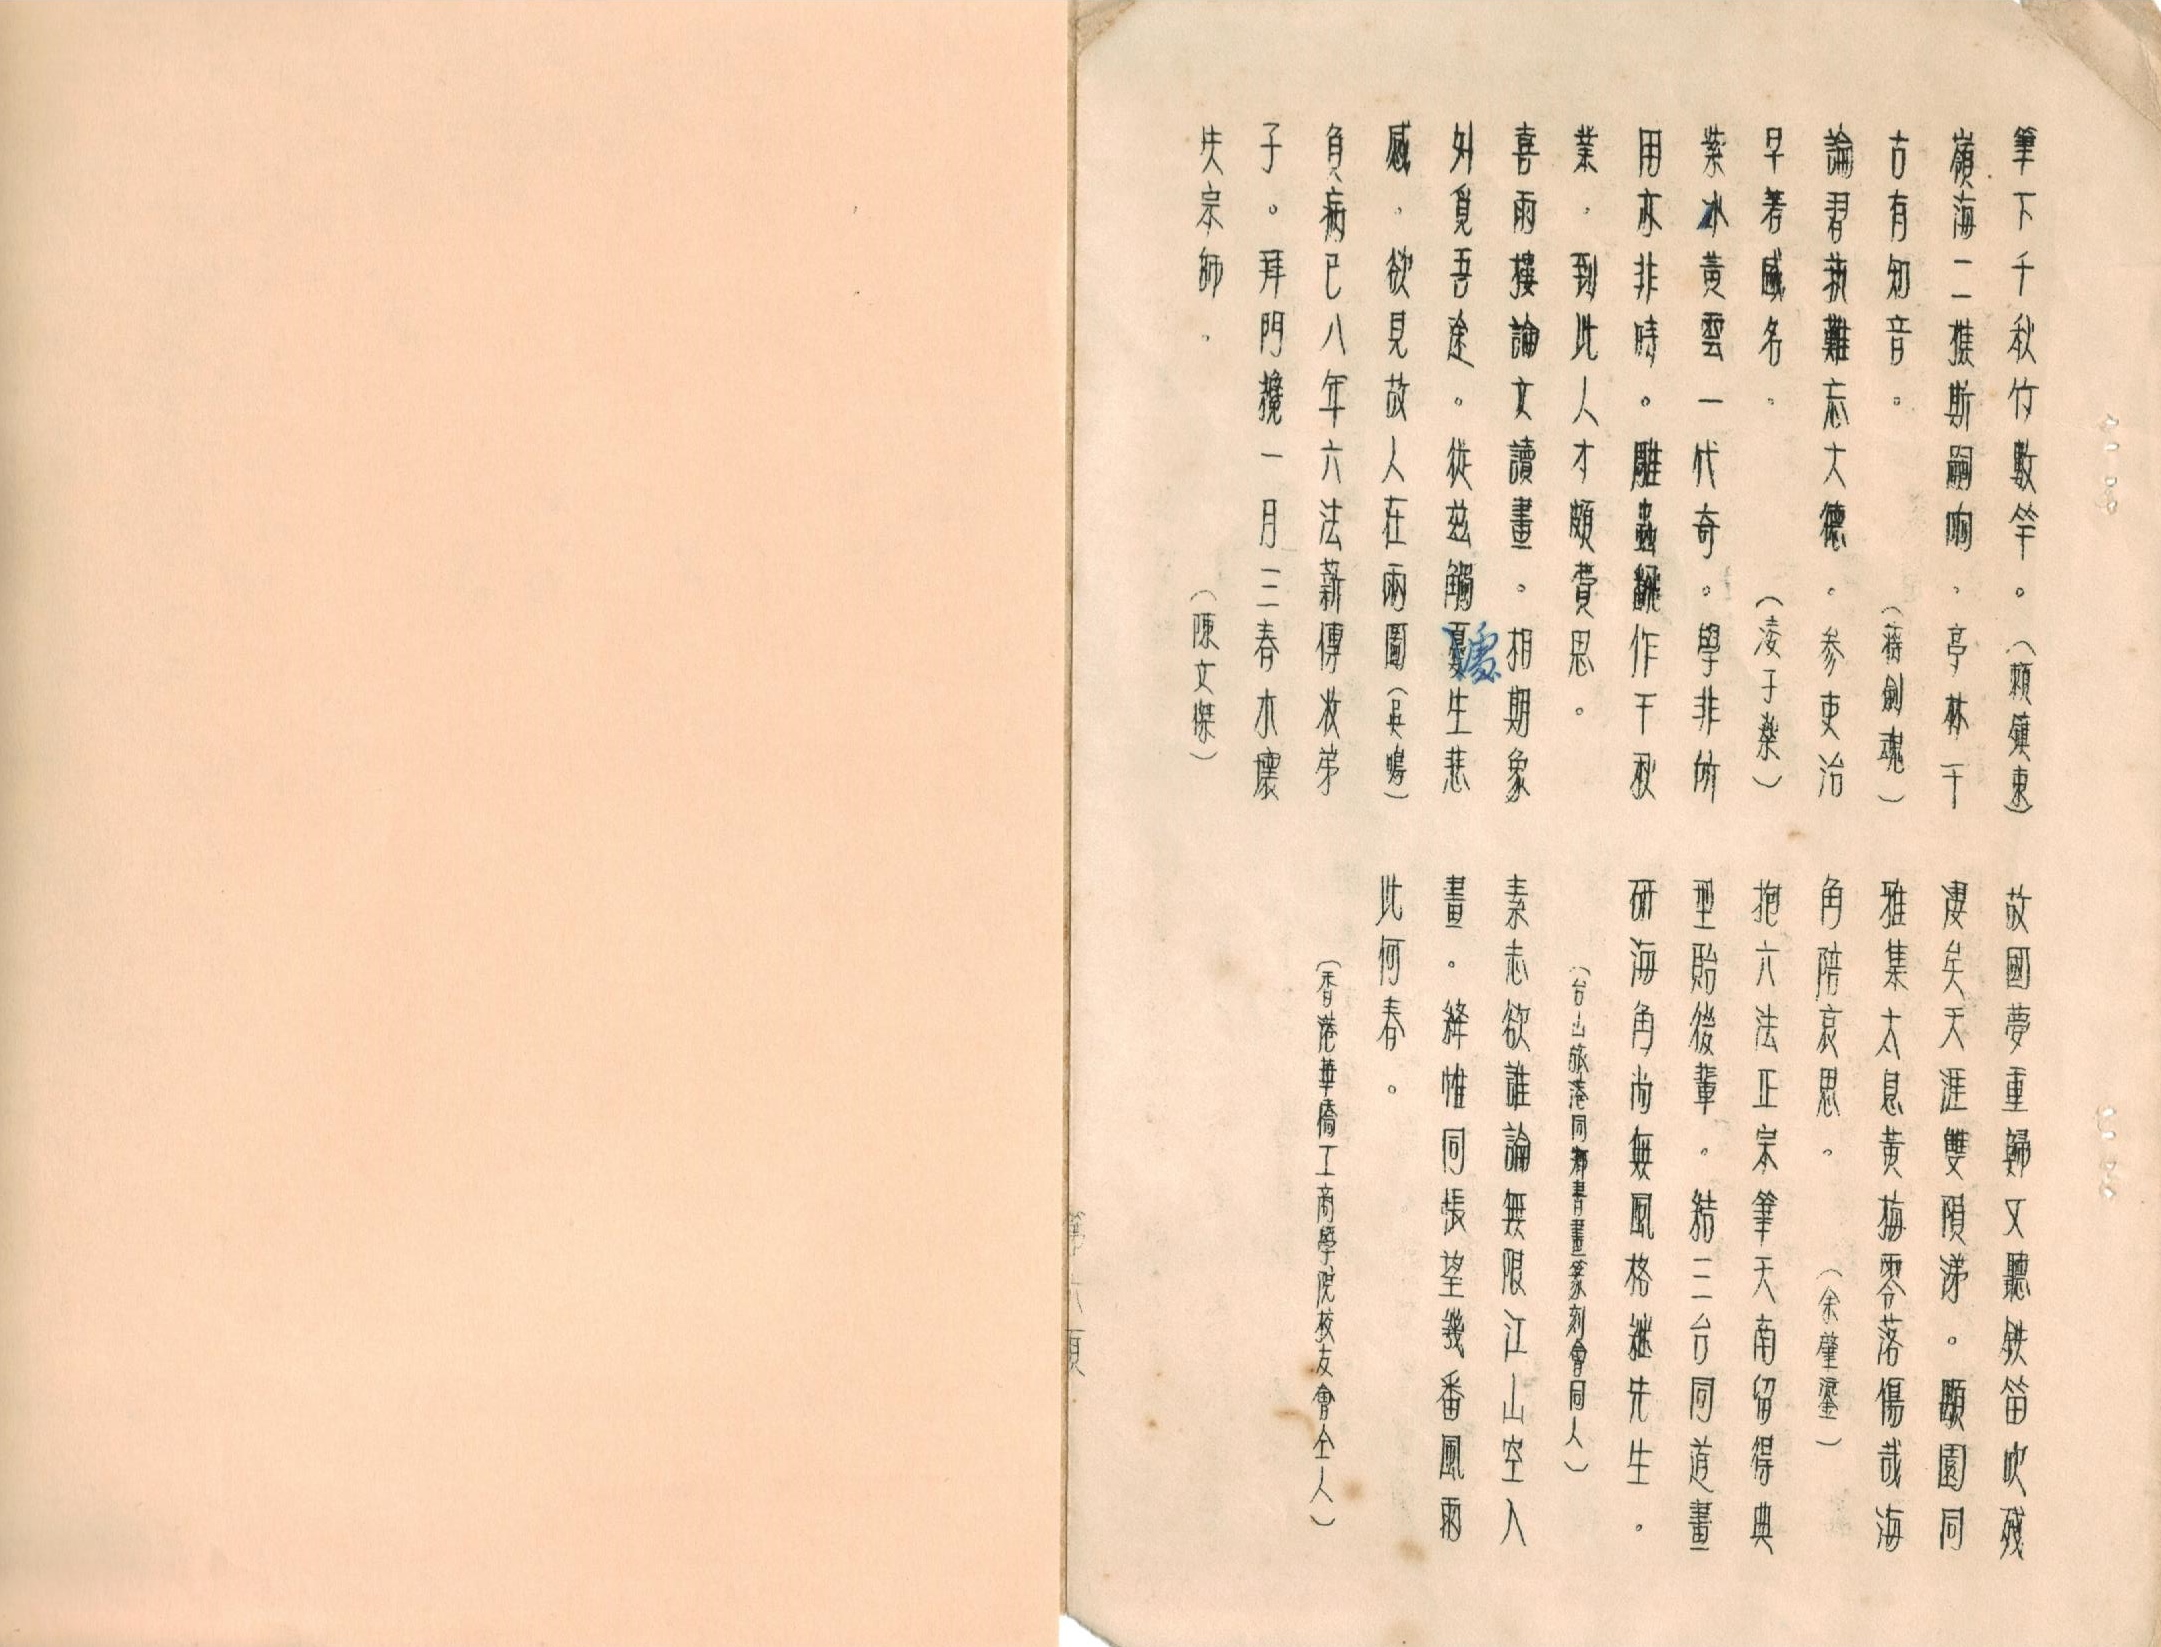 筆下千秋竹數竿。（賴鎮東）
嶺海二樵斯嗣响，亭林千
古有知音。
（蔣劍魂）
論君藝難忘大德，參吏治
早著威名。
（凌子藥）
紫水黃雲一代奇。學非所
用亦非時。雕蟲翻作千秋
業，到此人才頗費思。
喜雨樓論文讀畫。相期象
外覓吾途。從茲觸處生悲
感，欲見故人在兩圖（吳鳴）
負病已八年六法薪傳收弟
子。拜門纔一月三春木壞
失宗師。
（陳文傑）
故國夢重歸又聽鉄笛吹殘
凄矣天涯雙隕涕。顒園同
雅集太息黃梅零落傷哉海
角陪哀思。
（余肇鎏）
抱六法正宗筆天南留得典
型貽後輩。結三台同道畫
研海角尚無風格繼先生。
（台山旅港同鄉書畫篆刻會同人）
素志欲誰論無限江山空入
畫。絳帷同悵望幾番風雨
此何春。
（香港華僑工商學院校友會仝人）
第六頁